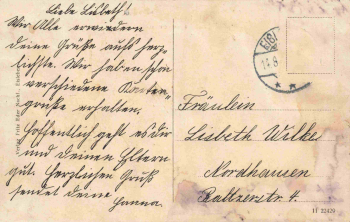 Liebe Lisbeth!
Wir Alle erwiedern
deine Grüße aufs herz-
lichste. Wir haben schon
verschiedene Karten-
grüße erhalten.
Hoffentlich geht es dir
und deinen Eltern
gut. Herzlichen Gruß
sendet deine
Hanna.
Fräulein
Lisbeth Wilke
Nordhausen
Baltzerstr. 4.